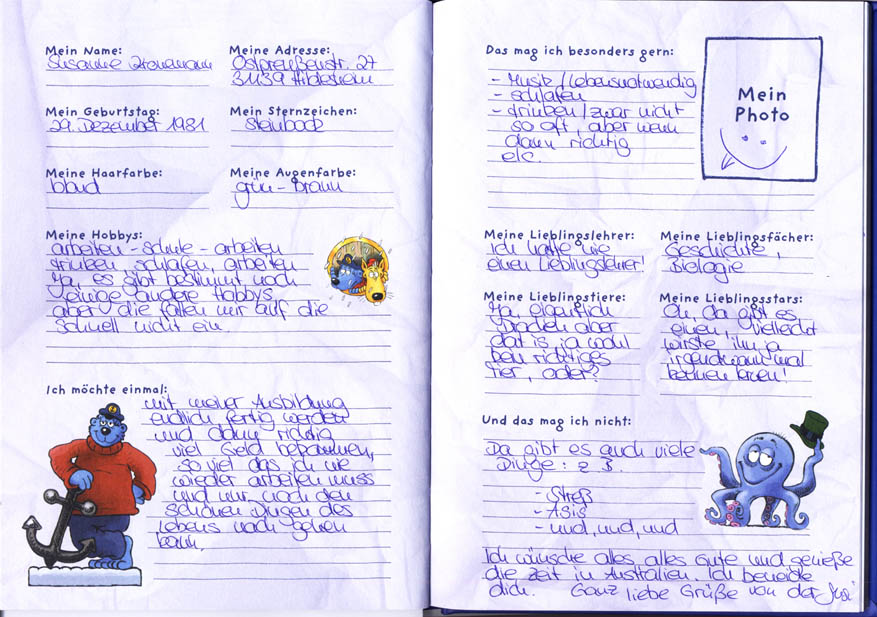 Mein Name:
Susanne
Meine Adresse:
Ostpreußenstr. 27
31139 Hildesheim
Mein Geburtstag:
29. Dezember 1981
Mein Sternzeichen:
Steinbock
Meine Haarfarbe:
blond
Meine Augenfarbe:
grün-braun
Meine Hobbys:
arbeiten - Schule - arbeiten
trinken, schlafen, arbeiten
Na, es gibt bestimmt noch
einige andere Hobbys
aber die fallen mir auf die
schnell nicht ein.
Ich möchte einmal:
mit meiner Ausbildung
endlich fertig werden
und dann richtig
viel Geld bekommen,
so viel das ich nie
wieder arbeiten muss
und nur noch den
schönen Dingen des
Lebens nach gehen
kann.
Das mag ich besonders gern:
- Musik / Lebensnotwendig
- schlafen
- trinken / zwar nicht
so oft, aber wenn
dann richtig
etc.
Mein
Photo
Meine Lieblingslehrer:
Ich hatte nie
einen Lieblingslehrer!
Meine Lieblingsfächer:
Geschichte,
Biologie
Meine Lieblingstiere:
Na, eigentlich
Drachen aber
dat is ja wohl
kein richtiges
Tier, oder?
Meine Lieblingsstars:
Oh, da gibt es
einen, vielleicht
wirste ihn ja
irgendwann mal
kennen lernen!
Und das mag ich nicht:
Da gibt es auch viele
Dinge: z.B.
- Streß
- Asis
- und, und, und
Ich wünsche alles, alles gute und genieße
die Zeit in Australien. Ich beneide
dich. Ganz liebe Grüße von der Susi